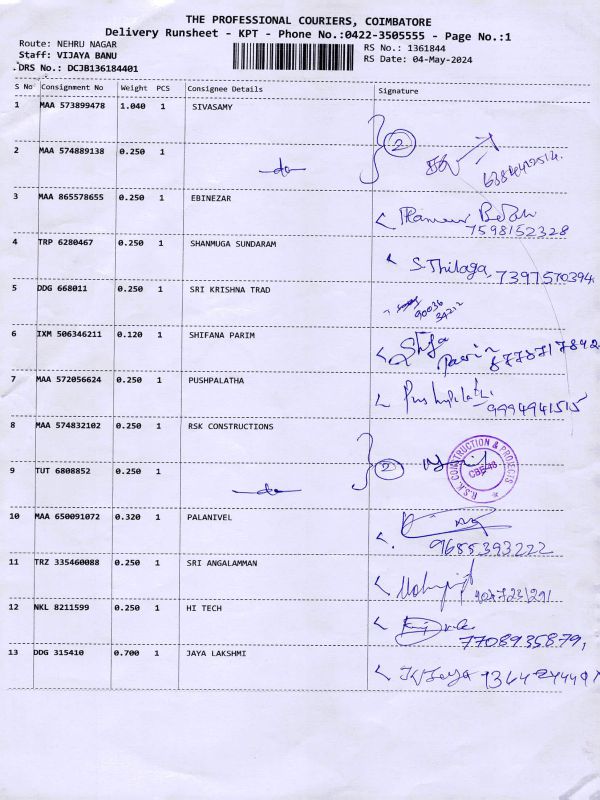 THE PROFESSIONAL COURIERS, COIMBATORE
Delivery Runsheet - KPT - Phone No.:0422-3505555 - Page No.:1
Route: NEHRU NAGAR
RS No.: 1361844
Staff: VIJAYA BANU
RS Date: 04-May-2024
DRS No.: DCJB136184401
S No Consignment No Weight PCS Consignee Details Signature
1 MAA 573899478 1.040 1 SIVASAMY
2 MAA 574889138 0.250 1 do 2
3 MAA 865578655 0.250 1 EBINEZAR
7598152328
4 TRP 6280467 0.250 1 SHANMUGA SUNDARAM
S.Thilaga 7397570394
5 DDG 668011 0.250 1 SRI KRISHNA TRAD
90036
34212
6 IXM 506346211 0.120 1 SHIFANA PARIM
7 MAA 572056624 0.250 1 PUSHPALATHA
Pushpalatha
9994941515
8 MAA 574832102 0.250 1 RSK CONSTRUCTIONS
9 TUT 6808852 0.250 1 do 2
R.S.K. CONSTRUCTION & PROJECTS
CBE-48
10 MAA 650091072 0.320 1 PALANIVEL
9655393222
11 TRZ 335460088 0.250 1 SRI ANGALAMMAN
12 NKL 8211599 0.250 1 HI TECH
7708935879,
13 DDG 315410 0.700 1 JAYA LAKSHMI